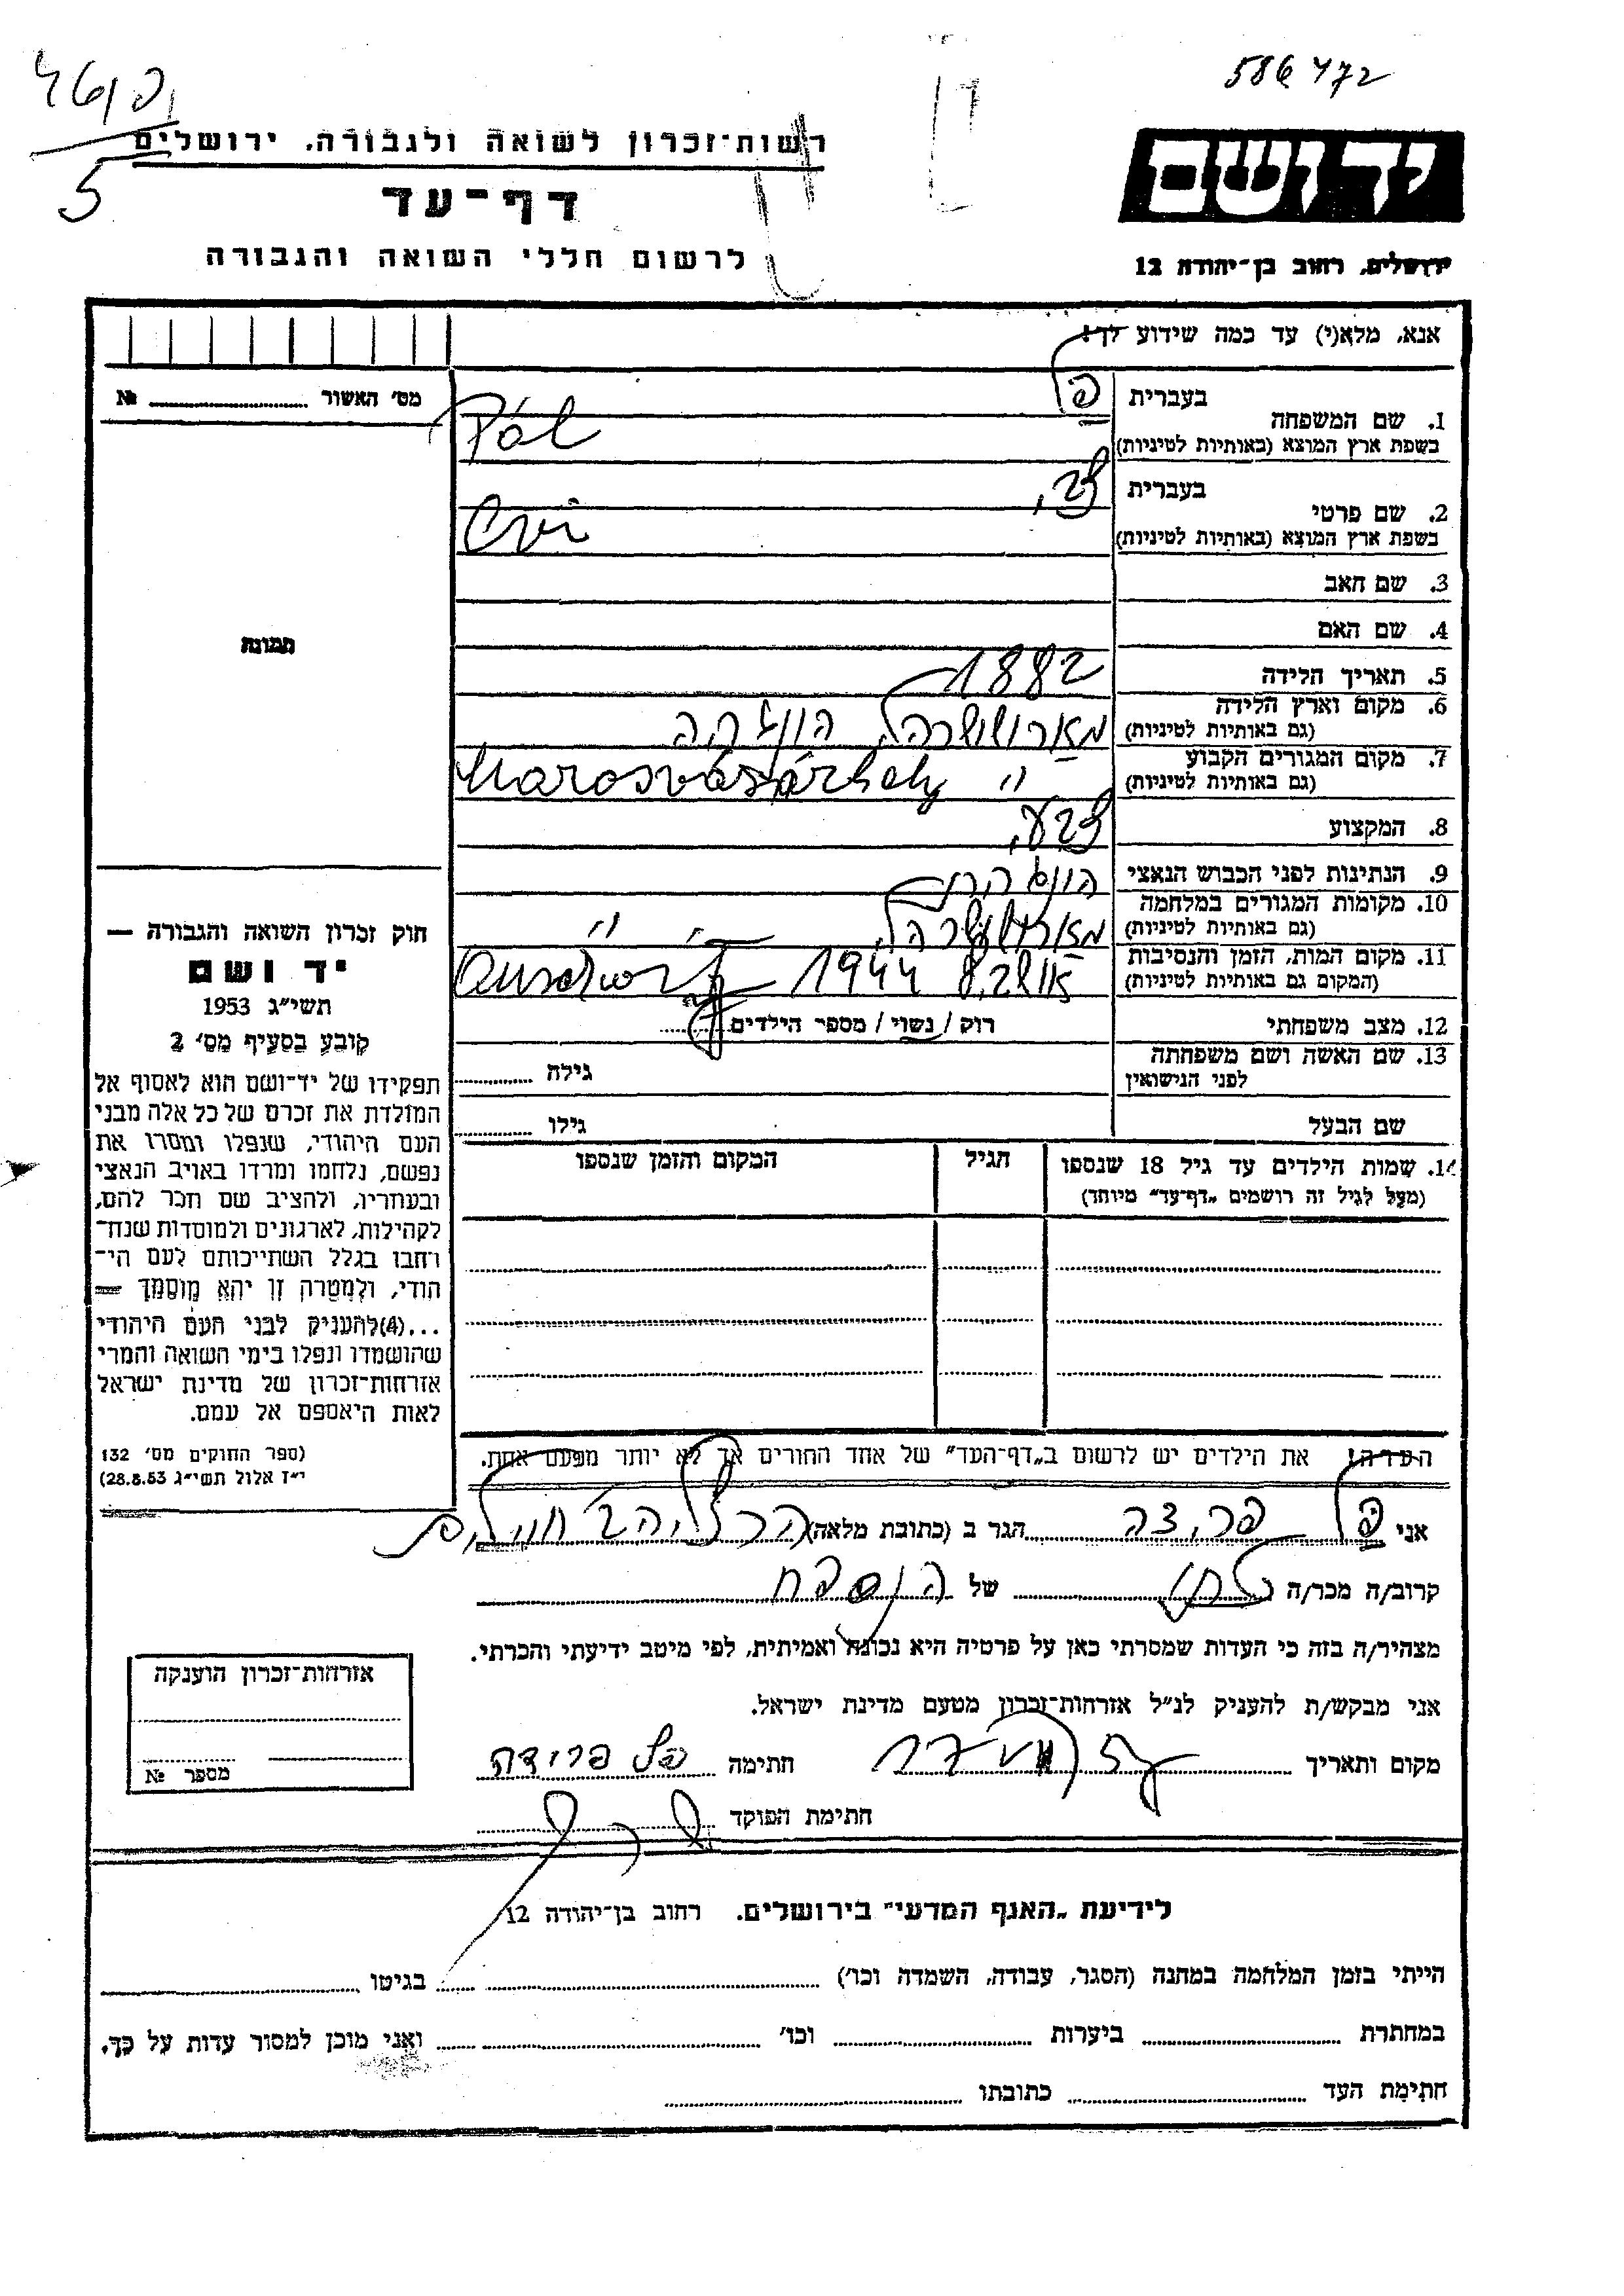 586472
רשות־זכרון לשואה ולגבורה, ירושלים
5
יד ושם
דף־עד
ירושלים, רחוב בן־יהודה 12
לרשום חללי השואה והגבורה
אנא, מלא(י) עד כמה שידוע לך!
מס׳ האשור № 
1. שם המשפחה
בעברית פל
בשפת ארץ המוצא (באותיות לטיניות) Pál
2. שם פרטי
בעברית צבי
בשפת ארץ המוצא (באותיות לטיניות) Cvi
3. שם האב
4. שם האם
תמונה
5. תאריך הלידה 1882
6. מקום וארץ הלידה
(גם באותיות לטיניות) הונגריה
7. מקום המגורים הקבוע
(גם באותיות לטיניות) " Marosvásárhely
8. המקצוע צבעי
9. הנתינות לפני הכבוש הנאצי הונגרית
10. מקומות המגורים במלחמה
(גם באותיות לטיניות)
11. מקום המות, הזמן והנסיבות
(המקום גם באותיות לטיניות) 1944
12. מצב משפחתי רוק / נשוי / מספר הילדים
13. שם האשה ושם משפחתה
לפני הנישואין גילה
שם הבעל גילו
14. שמות הילדים עד גיל 18 שנספו
(מעל לגיל זה רושמים „דף־עד״ מיוחד)
הגיל
המקום והזמן שנספו
חוק זכרון השואה והגבורה —
יד ושם
תשי״ג 1953
קובע בסעיף מס׳ 2
תפקידו של יד־ושם הוא לאסוף אל
המולדת את זכרם של כל אלה מבני
העם היהודי, שנפלו ומסרו את
נפשם, נלחמו ומרדו באויב הנאצי
ובעוזריו, ולהציב שם וזכר להם,
לקהילות, לארגונים ולמוסדות שנח־
רחבו בגלל השתייכותם לעם הי־
הודי, ולמטרה זו יהא מוסמך —
...(4)להעניק לבני העם היהודי
שהושמדו ונפלו בימי השואה והמרי
אזרחות־זכרון של מדינת ישראל
לאות היאספם אל עמם.
(ספר החוקים מס׳ 132
י״ז אלול תשי״ג 28.8.53)
הערה! את הילדים יש לרשום ב„דף־העד״ של אחד ההורים אך לא יותר מפעם אחת.
אני פל פרידה הגר ב (כתובת מלאה)
קרוב/ה מכר/ה של הנספה
מצהיר/ה בזה כי העדות שמסרתי כאן על פרטיה היא נכונה ואמיתית, לפי מיטב ידיעתי והכרתי.
אני מבקש/ת להעניק לנ״ל אזרחות־זכרון מטעם מדינת ישראל.
מקום ותאריך חתימה פל פרידה
חתימת הפוקד
אזרחות־זכרון הוענקה
מספר №
לידיעת „האגף המדעי״ בירושלים. רחוב בן־יהודה 12
הייתי בזמן המלחמה במחנה (הסגר, עבודה, השמדה וכו׳) בגיטו
במחתרת ביערות וכו׳ ואני מוכן למסור עדות על כך.
חתימת העד כתובתו